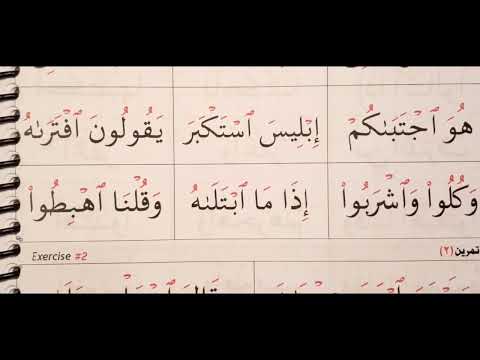 هُوَ ٱجْتَبَىٰكُمْ إِبْلِيسَ ٱسْتَكْبَرَ يَقُولُونَ ٱفْتَرَىٰهُ
وَكُلُوا۟ وَٱشْرَبُوا۟ إِذَا مَا ٱبْتَلَىٰهُ وَقُلْنَا ٱهْبِطُوا۟
تمرين (٢) Exercise #2